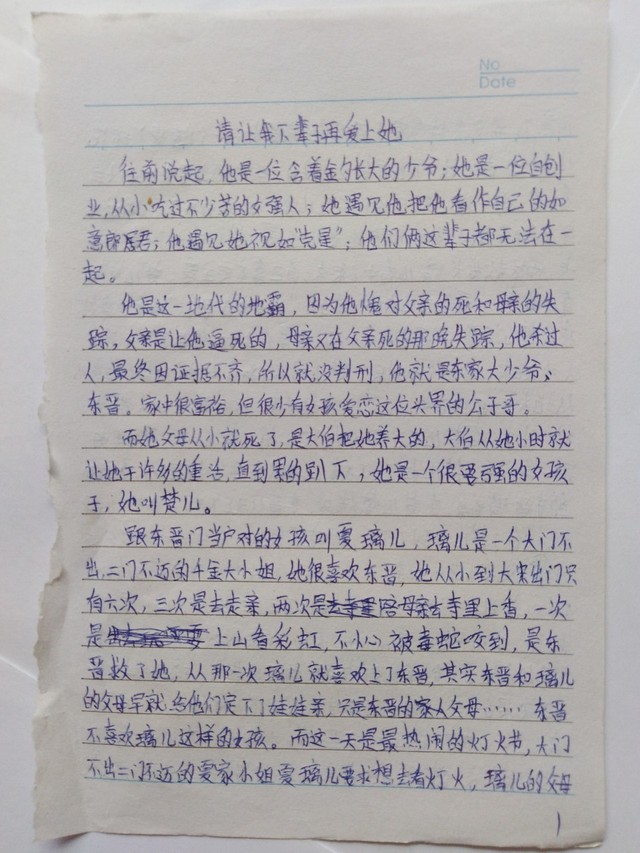 No
Date
请让我下辈子再爱上她
往前说起，他是一位含着金勺长大的少爷；她是一位自创
业，从小吃过不少苦的女强人；她遇见他把他看作自己的如
意郎君；他遇见她视如“克星”；他们俩这辈子都无法在一
起。
他是这一地代的地霸，因为他对父亲的死和母亲的失
踪，父亲是让他逼死的，母亲又在父亲死的那晚失踪，他杀过
人，最终因证据不齐，所以就没判刑，他就是东家大少爷，
东晋。家中很富裕，但很少有女孩爱恋这位头界的公子哥。
而她父母从小就死了，是大伯把她养大的，大伯从她小时就
让她干许多的重活，直到累的趴下，她是一个很要强的女孩
子，她叫楚儿。
跟东晋门当户对的女孩叫夏璃儿，璃儿是一个大门不
出，二门不迈的千金大小姐，她很喜欢东晋，她从小到大来出门只
有六次，三次是去走亲，两次是陪母亲去寺里上香，一次
是上山看彩虹，不小心被毒蛇咬到，是东
晋救了她，从那一次璃儿就喜欢上了东晋，其实东晋和璃儿
的父母早就给他们定下了娃娃亲，只是东晋的家人父母……东晋
不喜欢璃儿这样的女孩。而这一天是最热闹的灯火节，大门
不出二门不迈的夏家小姐夏璃儿要求想去看灯火，璃儿的父母
1